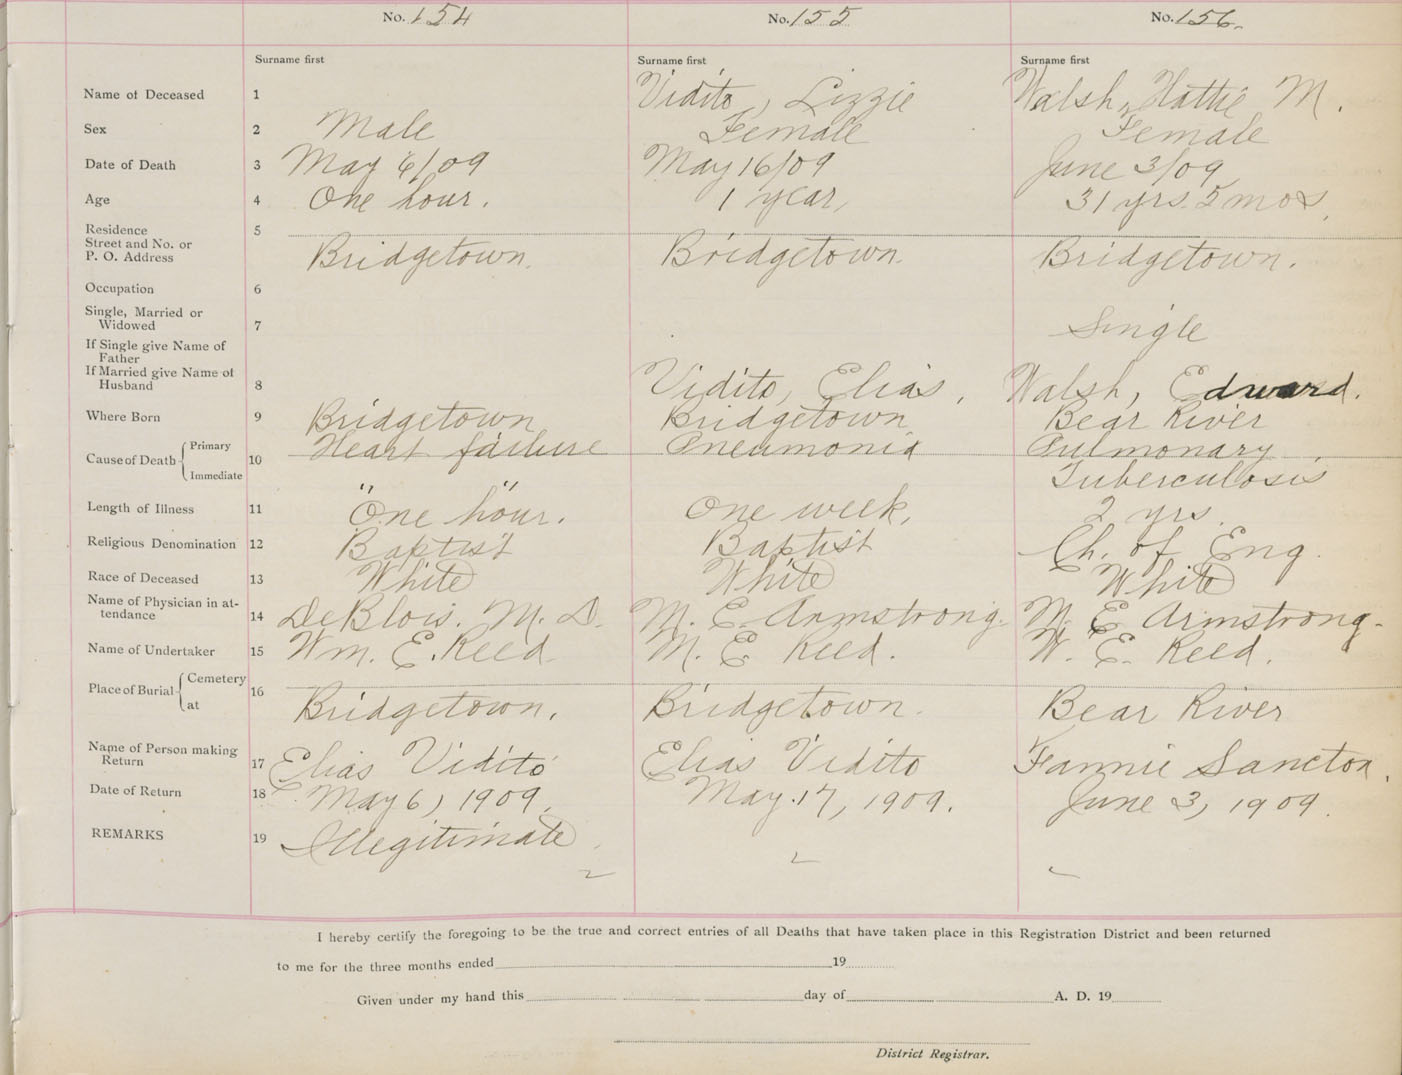 No. 154 No. 155 No. 156.
Surname first Surname first Surname first
Name of Deceased 1 Vidito, Lizzie Walsh, Hattie M.
Sex 2 Male Female Female
Date of Death 3 May 6/09 May 16/09 June 3/09
Age 4 One hour. 1 year, 31 yrs. 5 mos.
Residence 5
Street and No. or
P. O. Address Bridgetown. Bridgetown. Bridgetown.
Occupation 6
Single, Married or
Widowed 7 Single
If Single give Name of
Father
If Married give Name of
Husband 8 Vidito, Elias, Walsh, Edward.
Where Born 9 Bridgetown Bridgetown Bear River
Cause of Death { Primary 10 Heart failure Pneumonia Pulmonary
Immediate Tuberculosis
Length of Illness 11 "One hour." One week, 2 yrs.
Religious Denomination 12 Baptist Baptist Ch. of Eng.
Race of Deceased 13 White White White
Name of Physician in at-
tendance 14 DeBlois. M. D. M. E. Armstrong. M. E. Armstrong.
Name of Undertaker 15 Wm. E. Reed M. E. Reed. W. E. Reed.
Place of Burial { Cemetery 16
at Bridgetown. Bridgetown. Bear River
Name of Person making
Return 17 Elias Vidito Elias Vidito Fannie Sancton.
Date of Return 18 May 6, 1909. May 17, 1909. June 3, 1909.
REMARKS 19 Illegitimate
I hereby certify the foregoing to be the true and correct entries of all Deaths that have taken place in this Registration District and been returned
to me for the three months ended 19
Given under my hand this day of A. D. 19
District Registrar.